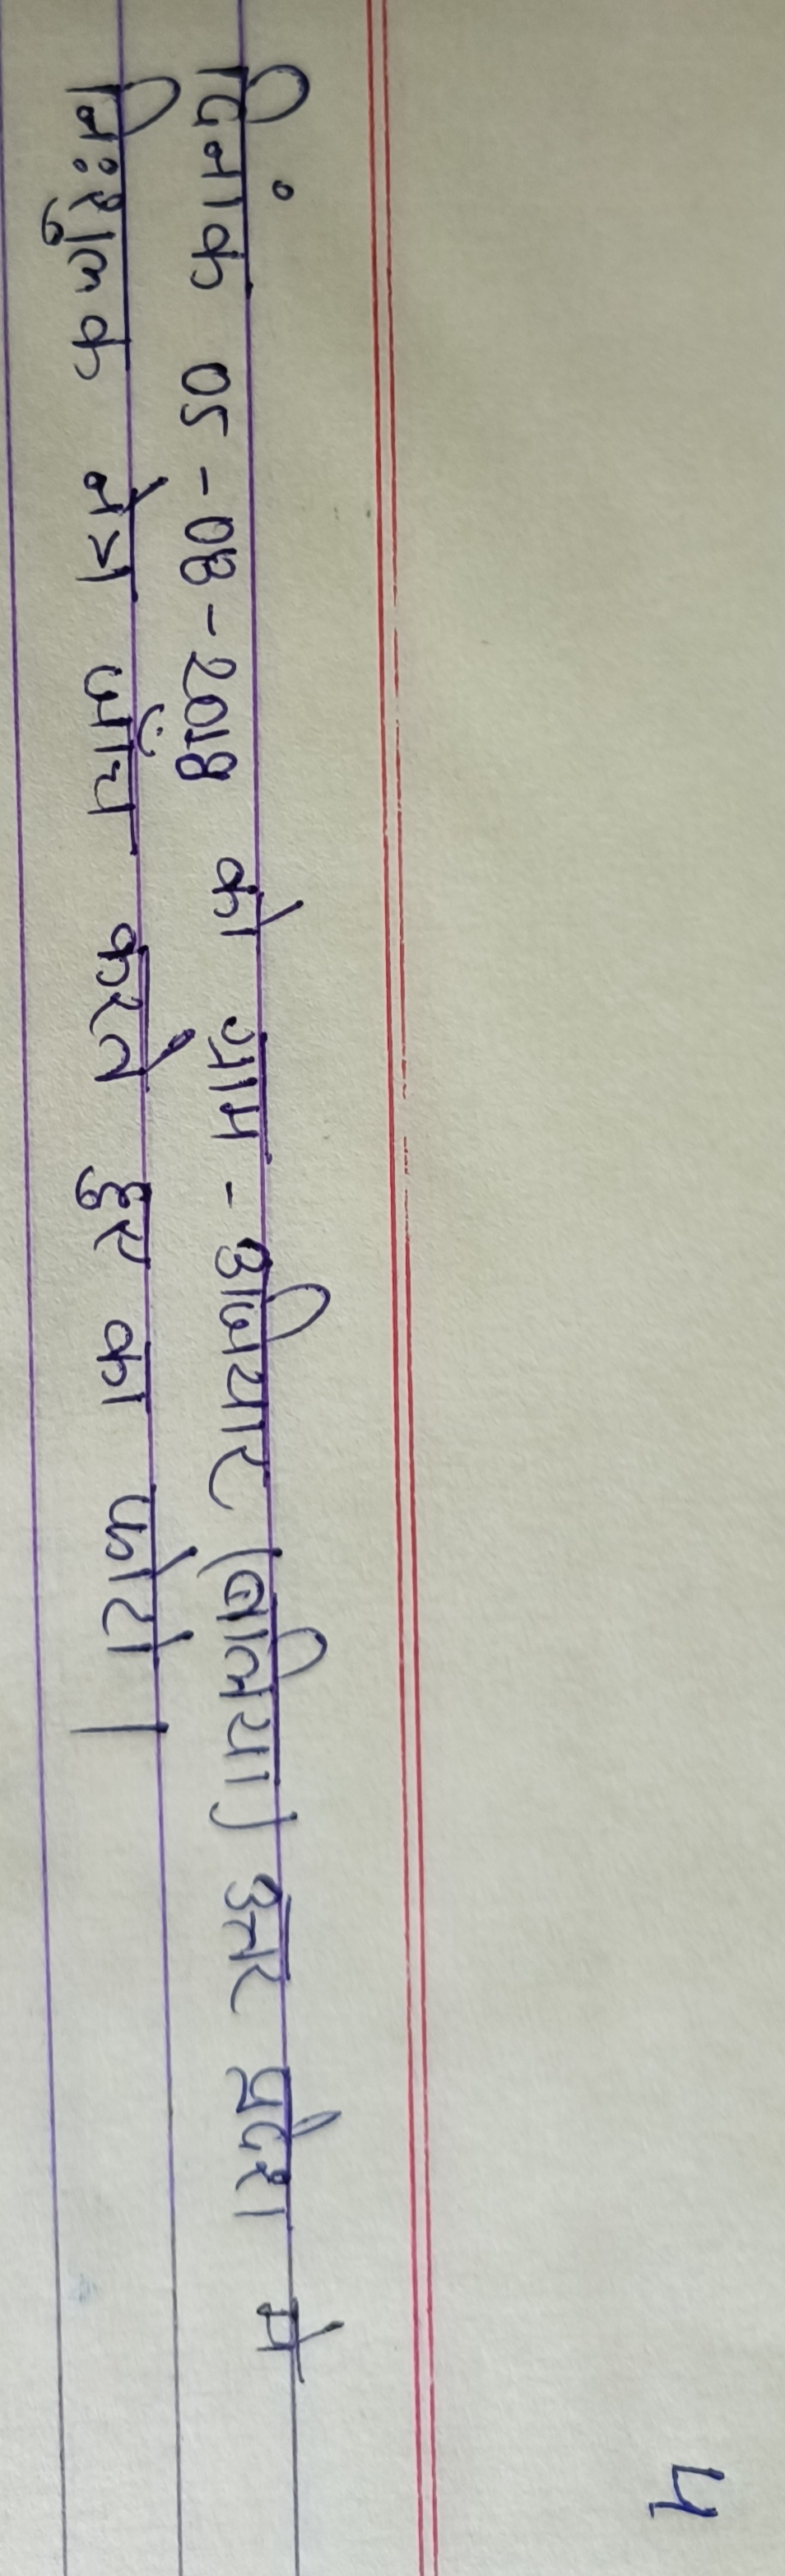 4
दिनांक 05-08-2018 को ग्राम - उजियार (बलिया) उत्तर प्रदेश मे
निःशुल्क नेत्र जाँच करते हुए का फोटो।